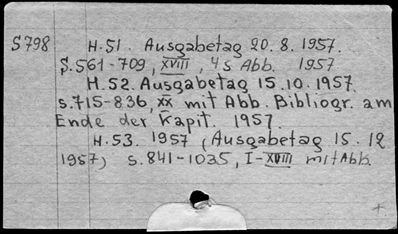 S798 H.51. Ausgabetag 20.8.1957.
S.561-709, XVIII, 4s Abb. 1957
H.52. Ausgabetag 15.10.1957.
s.715-836, XX mit Abb. Bibliogr. am
Ende der Kapit. 1957.
H.53. 1957 (Ausgabetag 15.12
1957) s.841-1035, I-XVIII mit Abb.
+